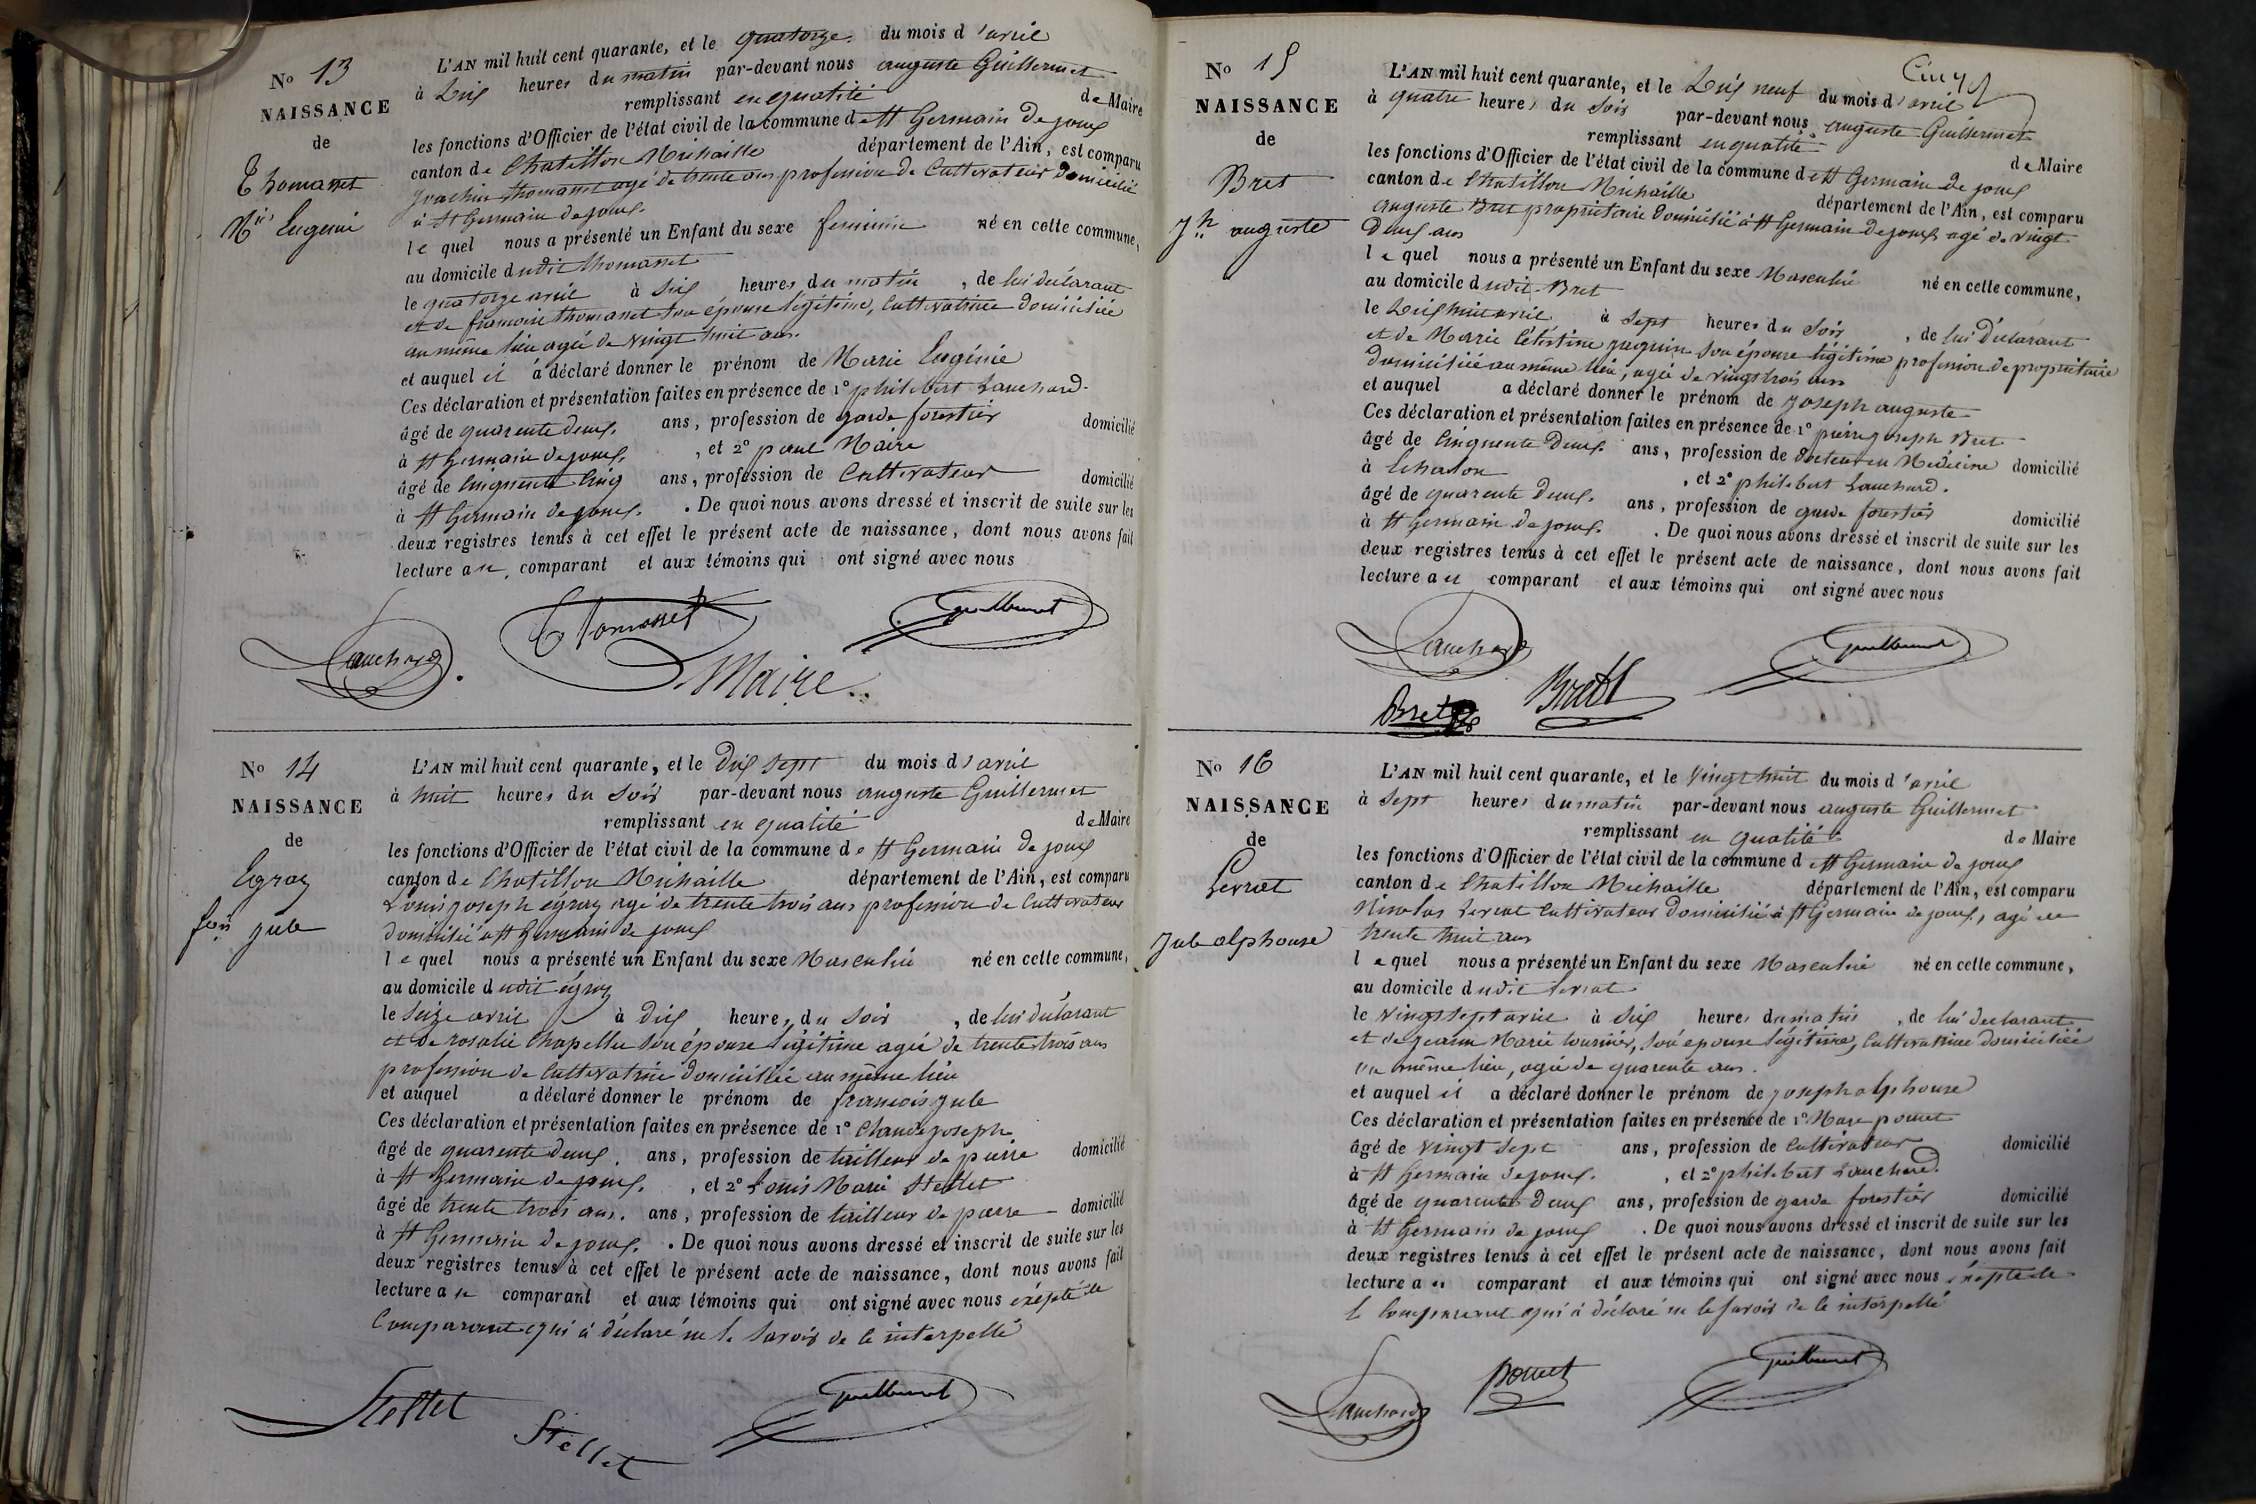 No 13
NAISSANCE
de
Thomasset
Mie Eugenie
L'AN mil huit cent quarante, et le quatorze du mois d'avril
à Dix heures du matin par-devant nous auguste Guillermet
remplissant en qualité de Maire
les fonctions d'Officier de l'état civil de la commune de St Germain de joux
canton de Chatillon Michaille département de l'Ain, est comparu
joachim thomasset agé de trente ans profession de Cultivateur Domicilié
à St Germain de joux.
le quel nous a présenté un Enfant du sexe feminin né en cette commune,
au domicile dudit thomasset
le quatorze avril à six heures du matin, de lui déclarant
et de francoise thomasset son épouse légitime, Cultivatrice domiciliée
au même lieu agée de vingt huit ans.
et auquel il a déclaré donner le prénom de Marie Eugénie
Ces déclaration et présentation faites en présence de 1o philibert Lauchard.
âgé de quarente deux. ans, profession de garde forestier domicilié
à St Germain de joux. , et 2o paul Maire
âgé de Cinquente Cinq ans, profession de Cultivateur domicilié
à St Germain de joux. . De quoi nous avons dressé et inscrit de suite sur les
deux registres tenus à cet effet le présent acte de naissance, dont nous avons fait
lecture au comparant et aux témoins qui ont signé avec nous
Lauchard Thomasset Guillermet
Maire
No 14
NAISSANCE
de
Egraz
fois jule
L'AN mil huit cent quarante, et le Dix sept du mois d'avril
à huit heures du Soir par-devant nous auguste Guillermet
remplissant en qualité de Maire
les fonctions d'Officier de l'état civil de la commune de St Germain de joux
canton de Chatillon Michaille département de l'Ain, est comparu
Louis joseph egraz agé de trente trois ans profession de Cultivateur
domicilié à St Germain de joux
le quel nous a présenté un Enfant du sexe Masculin né en cette commune,
au domicile dudit égraz
le Seize avril à Dix heures du Soir, de lui déclarant
et de rosalie Chapellu son épouse légitime agée de trente trois ans
profession de Cultivatrice domiciliée au même lieu
et auquel a déclaré donner le prénom de francois jule
Ces déclaration et présentation faites en présence de 1o Claude joseph
âgé de quarente deux. ans, profession de tailleur de pierre domicilié
à St Germain de joux. , et 2o Louis Marie Stellet
âgé de trente trois ans. ans, profession de tailleur de pierre domicilié
à St Germain de joux. . De quoi nous avons dressé et inscrit de suite sur les
deux registres tenus à cet effet le présent acte de naissance, dont nous avons fait
lecture au comparant et aux témoins qui ont signé avec nous éxépté le
Comparant qui à déclaré ne le Savoir de ce interpellé
Stellet Stellet Guillermet
No 15
NAISSANCE
de
Bret
Jh auguste
L'AN mil huit cent quarante, et le Dix neuf du mois d'avril
à quatre heures du Soir par-devant nous auguste Guillermet
remplissant en qualité de Maire
les fonctions d'Officier de l'état civil de la commune de St Germain de joux
canton de Chatillon Michaille département de l'Ain, est comparu
auguste Bret propriétaire Domicilié à St Germain de joux agé de vingt
Deux ans
le quel nous a présenté un Enfant du sexe Masculin né en cette commune,
au domicile dudit Bret
le Dix huit avril à Sept heures du Soir, de lui Déclarant
et de Marie Célestine juguin Son épouse légitime profession de propriétaire
Domiciliée au même lieu, agée de vingt trois ans
et auquel a déclaré donner le prénom de joseph auguste
Ces déclaration et présentation faites en présence de 1o pierre joseph Bret
âgé de Cinquente Deux. ans, profession de Docteur en Médecine domicilié
à Echalon , et 2o philibert Lauchard.
âgé de quarente Deux. ans, profession de garde forestier domicilié
à St Germain de joux. . De quoi nous avons dressé et inscrit de suite sur les
deux registres tenus à cet effet le présent acte de naissance, dont nous avons fait
lecture au comparant et aux témoins qui ont signé avec nous
Lauchard Guillermet
Bret Brett
No 16
NAISSANCE
de
Levrat
Jule alphonse
L'AN mil huit cent quarante, et le Vingt huit du mois d'avril
à Sept heures du matin par-devant nous auguste Guillermet
remplissant en qualité de Maire
les fonctions d'Officier de l'état civil de la commune de St Germain de joux
canton de Chatillon Michaille département de l'Ain, est comparu
Nicolas Levrat Cultivateur Domicilié à St Germain de joux, agé de
trente huit ans
le quel nous a présenté un Enfant du sexe Masculin né en cette commune,
au domicile dudit Levrat
le Vingt sept avril à Six heures du matin, de lui declarant
et de jeanne Marie tournier, Son épouse légitime, Cultivatrice domiciliée
au même lieu, agée de quarente ans.
et auquel il a déclaré donner le prénom de joseph alphonse
Ces déclaration et présentation faites en présence de 1o Marc poncet
âgé de vingt sept ans, profession de Cultivateur domicilié
à St Germain de joux. , et 2o philibert Lauchard.
âgé de quarente Deux ans, profession de garde forestier domicilié
à St Germain de joux . De quoi nous avons dressé et inscrit de suite sur les
deux registres tenus à cet effet le présent acte de naissance, dont nous avons fait
lecture au comparant et aux témoins qui ont signé avec nous éxépté
le Comparant qui à déclaré ne le Savoir de ce interpellé
Lauchard poncet Guillermet